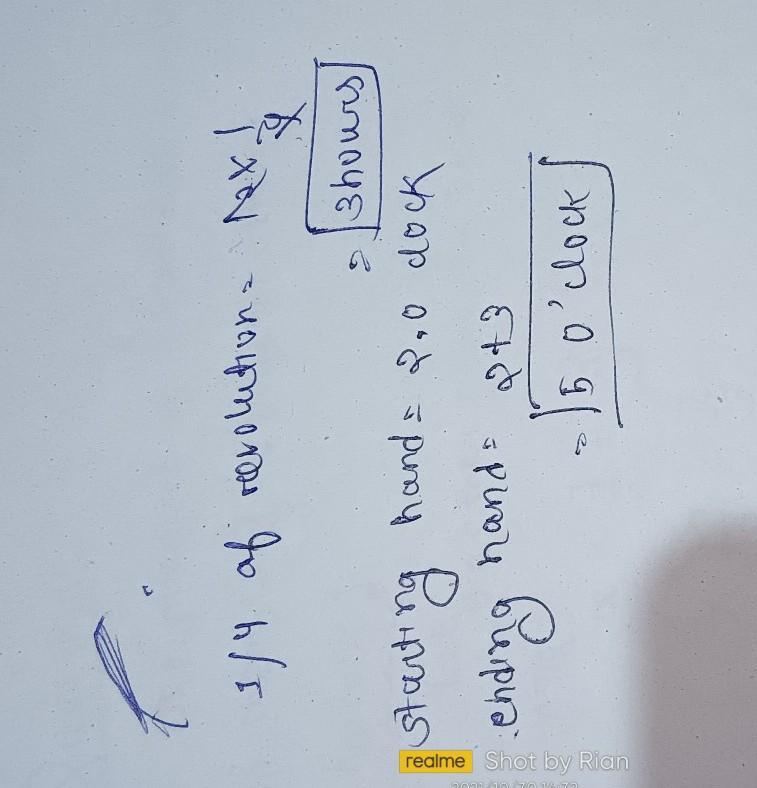 1/4 of revolution = 12 x 1/4
= 3 hours
starting hand = 2.0 clock
ending hand = 2+3
= 5 0'clock
realme Shot by Rian